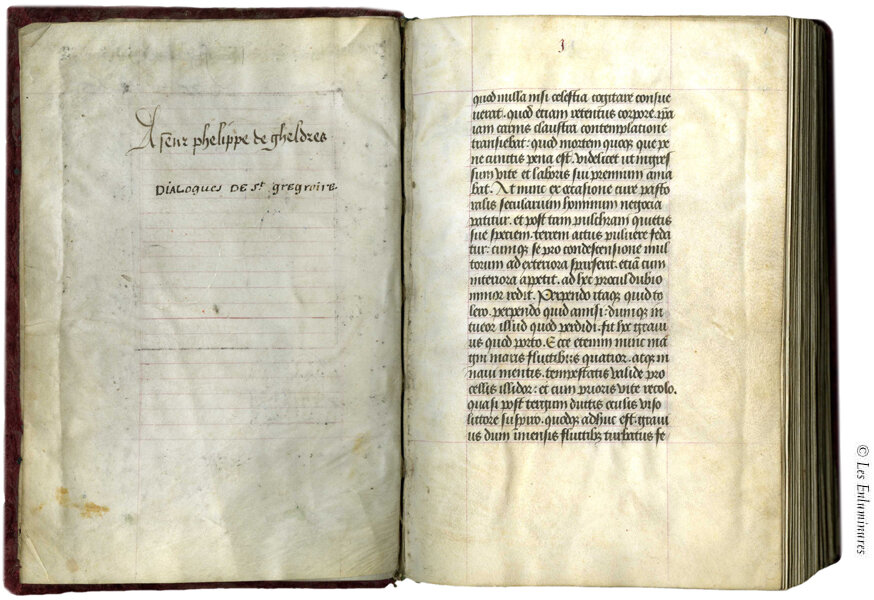 A seur phelippe de gheldres
DIALOGUES DE St GREGROIRE.
1
quod nulla nisi celestia cogitare consue
uerat. quod etiam retentus corpore. ip̄a
iam carnis claustra contemplatione
transiebat: quod mortem quoqꝫ que pe
ne cunctis pena est. videlicet ut ingres
sum vite et laboris sui premium ama
bat. At nunc ex occasione cure pasto
ralis secularium hominum negocia
patitur. et post tam pulchram quietis
sue speciem. terreni actus puluere feda
tur: cumqꝫ se pro condescensione mul
torum ad exteriora sparserit. etiā cum
interiora appetit. ad hec procul dubio
minor redit. Perpendo itaqꝫ quid to
lero. perpendo quid amisi: dumqꝫ in
tueor illud quod perdidi. fit hec graui
us quod porto. Ecce etenim nunc ma
gni maris fluctibus quatior. atqꝫ in
naui mentis. tempestatis valide pro
cellis illidor: et cum prioris vite recolo.
quasi post tergum ductis oculis viso
littore suspiro. quodqꝫ adhuc est graui
us dum imensis fluctibꝫ turbatus fe
© Les Enluminures